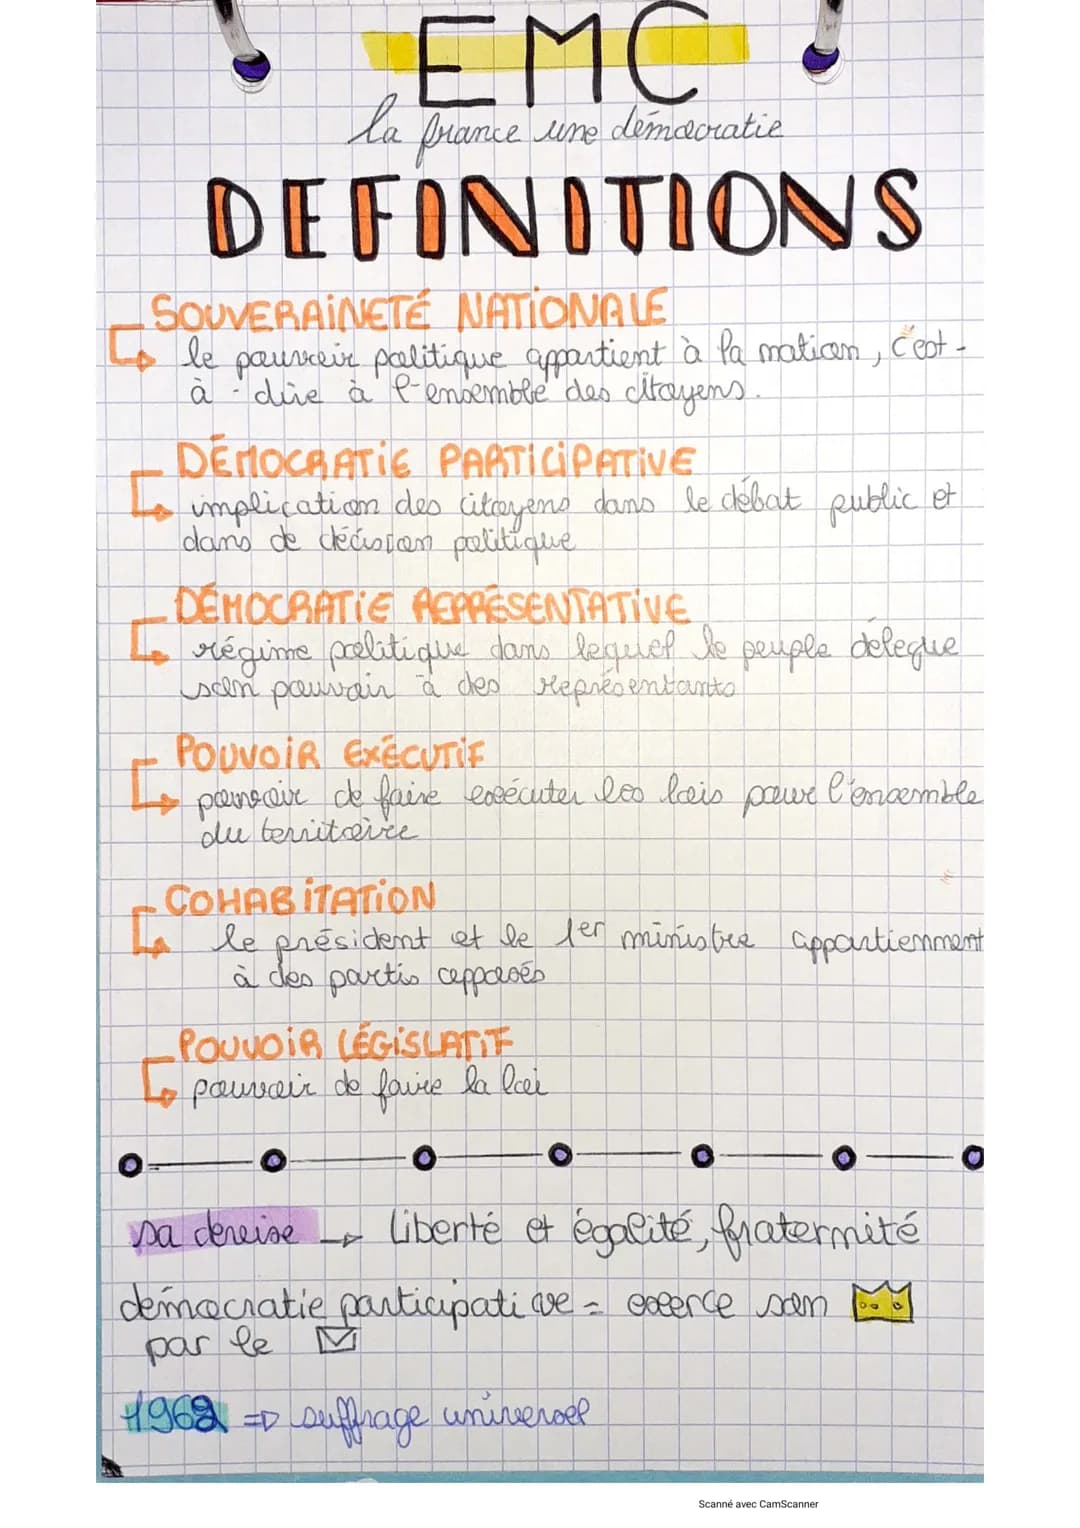 EMC
la france une démocratie
DEFINITIONS
SOUVERAINETÉ NATIONALE
le pouvoir politique appartient à la nation, c'est-
à-dire à l'ensemble des citoyens.
DÉMOCRATIE PARTICIPATIVE
implication des citoyens dans le débat public et
dans de décision politique
DÉMOCRATIE REPRÉSENTATIVE
régime politique dans lequel le peuple délègue
son pouvoir à des représentants
POUVOIR EXÉCUTIF
pouvoir de faire exécuter les lois pour l'ensemble
du territoire
COHABITATION
le président et le 1er ministre appartiennent
à des partis opposés
POUVOIR LÉGISLATIF
pouvoir de faire la loi
sa dereise → Liberté et égalité, fraternité
démocratie participative = exerce son
par le
1962 => suffrage universel
Scanné avec CamScanner